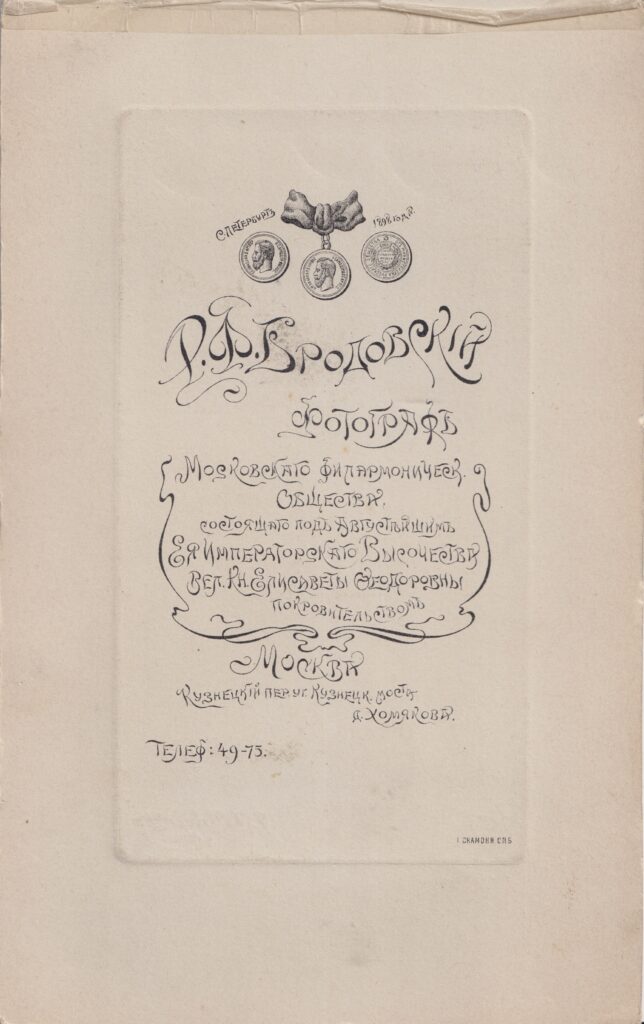 С. ПЕТЕРБУРГЪ 1898 ГОДА.
Р. Ф. БРОДОВСКІЙ
ФОТОГРАФЪ
МОСКОВСКАГО ФИЛАРМОНИЧЕСК.
ОБЩЕСТВА,
СОСТОЯЩАГО ПОДЪ АВГУСТѢЙШИМЪ
ЕЯ ИМПЕРАТОРСКАГО ВЫСОЧЕСТВА
ВЕЛ. КН. ЕЛИСАВЕТЫ ѲЕОДОРОВНЫ
ПОКРОВИТЕЛЬСТВОМЪ
МОСКВА
КУЗНЕЦКІЙ ПЕР. УГ. КУЗНЕЦК. МОСТА
Д. ХОМЯКОВА.
ТЕЛЕФ: 49-75.
І. СКАМОНИ СПБ